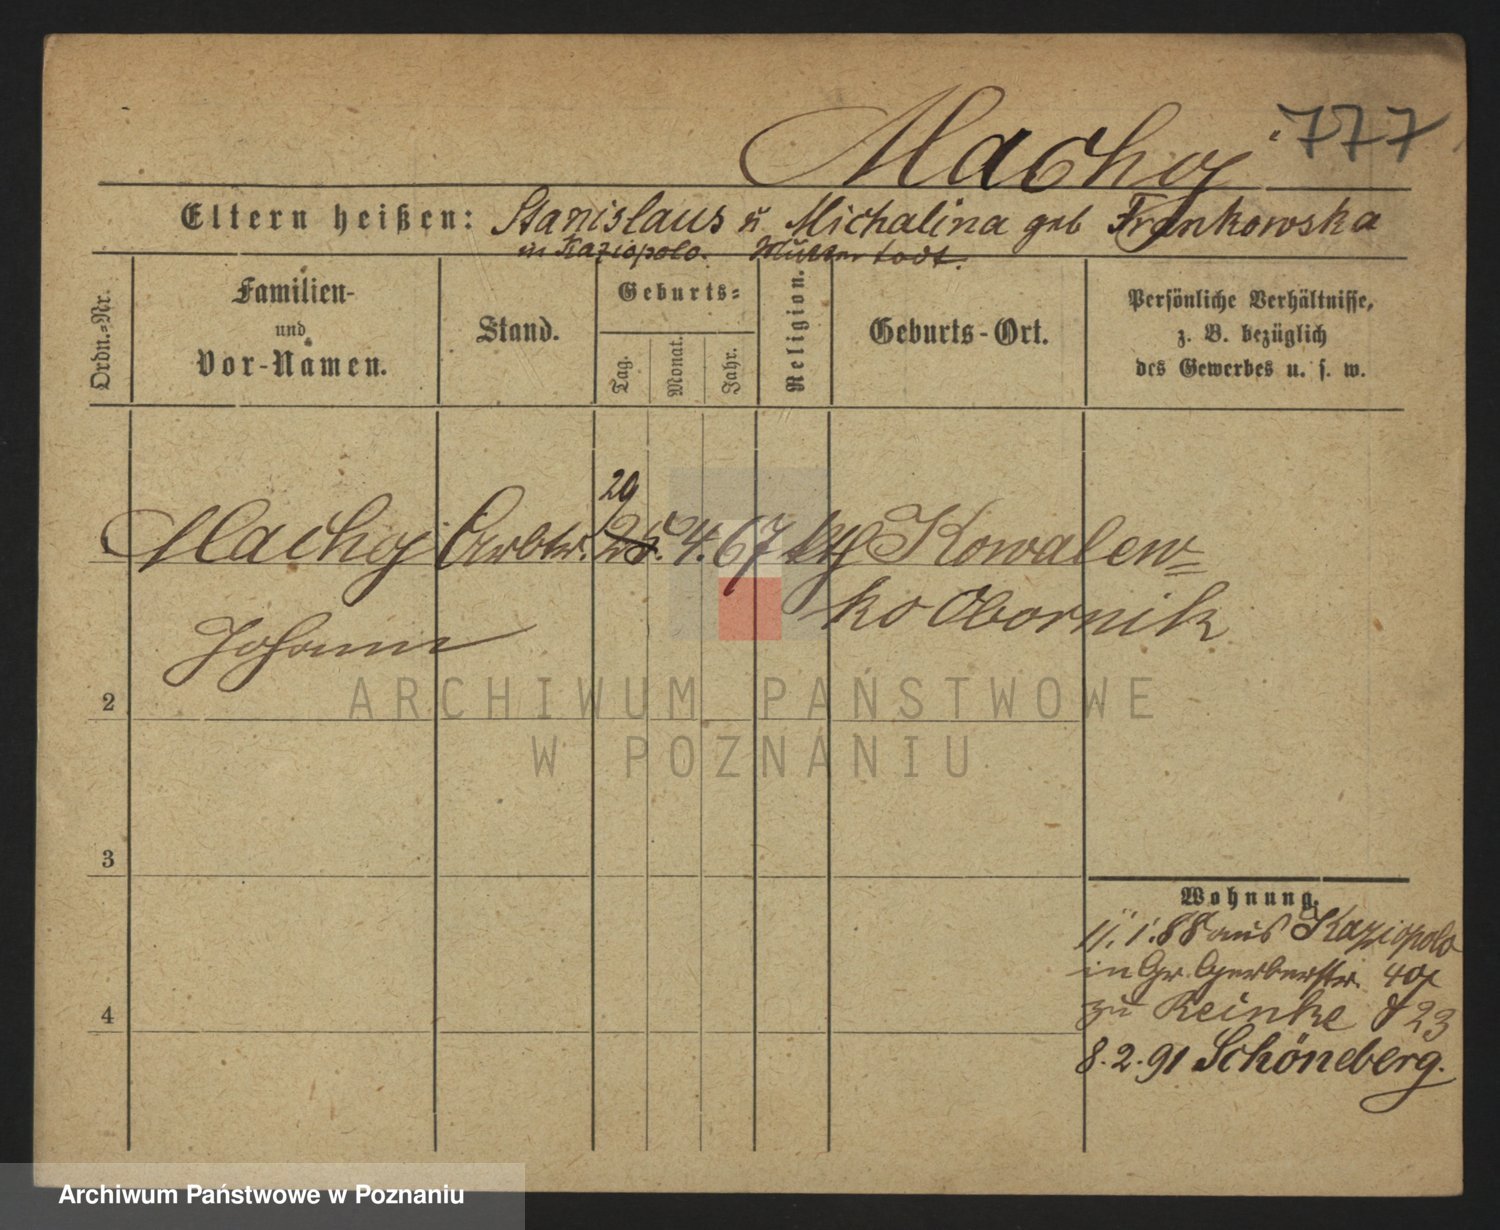 Machoj 777
Eltern heißen: Stanislaus u Michalina geb Frankowska
in Kaziopolo. Mutter todt.
Ordn.-Nr.
Familien-
und
Vor-Namen.
Stand.
Geburts-
Tag. Monat. Jahr.
Religion.
Geburts-Ort.
Persönliche Verhältnisse,
z. B. bezüglich
des Gewerbes u. s. w.
29
Machoj Arbtr. 25. 4. 67 kth Kowalew-
ko Obornik
Johann
2
3
4
Wohnung.
11. 1. 88 aus Kaziopolo
in Gr. Gerberstr. 40
zu Reinke 23
8. 2. 91 Schöneberg.
ARCHIWUM PAŃSTWOWE
W POZNANIU
Archiwum Państwowe w Poznaniu